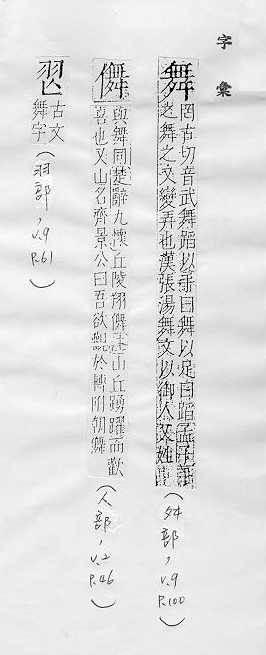 字彙
舞
罔古切音武舞蹈以手曰舞以足曰蹈孟子
舞之又變弄也漢張湯舞文以御人又姓
(舛部, v.9 P.100)
儛
與舞同楚辭九懷丘陵翔儛注山丘踴躍而歡
喜也又山名齊景公曰吾欲觀於轉附朝舞
(人部, v.2 P.46)
𦏶
古文
舞字
(羽部, v.9 P.61)